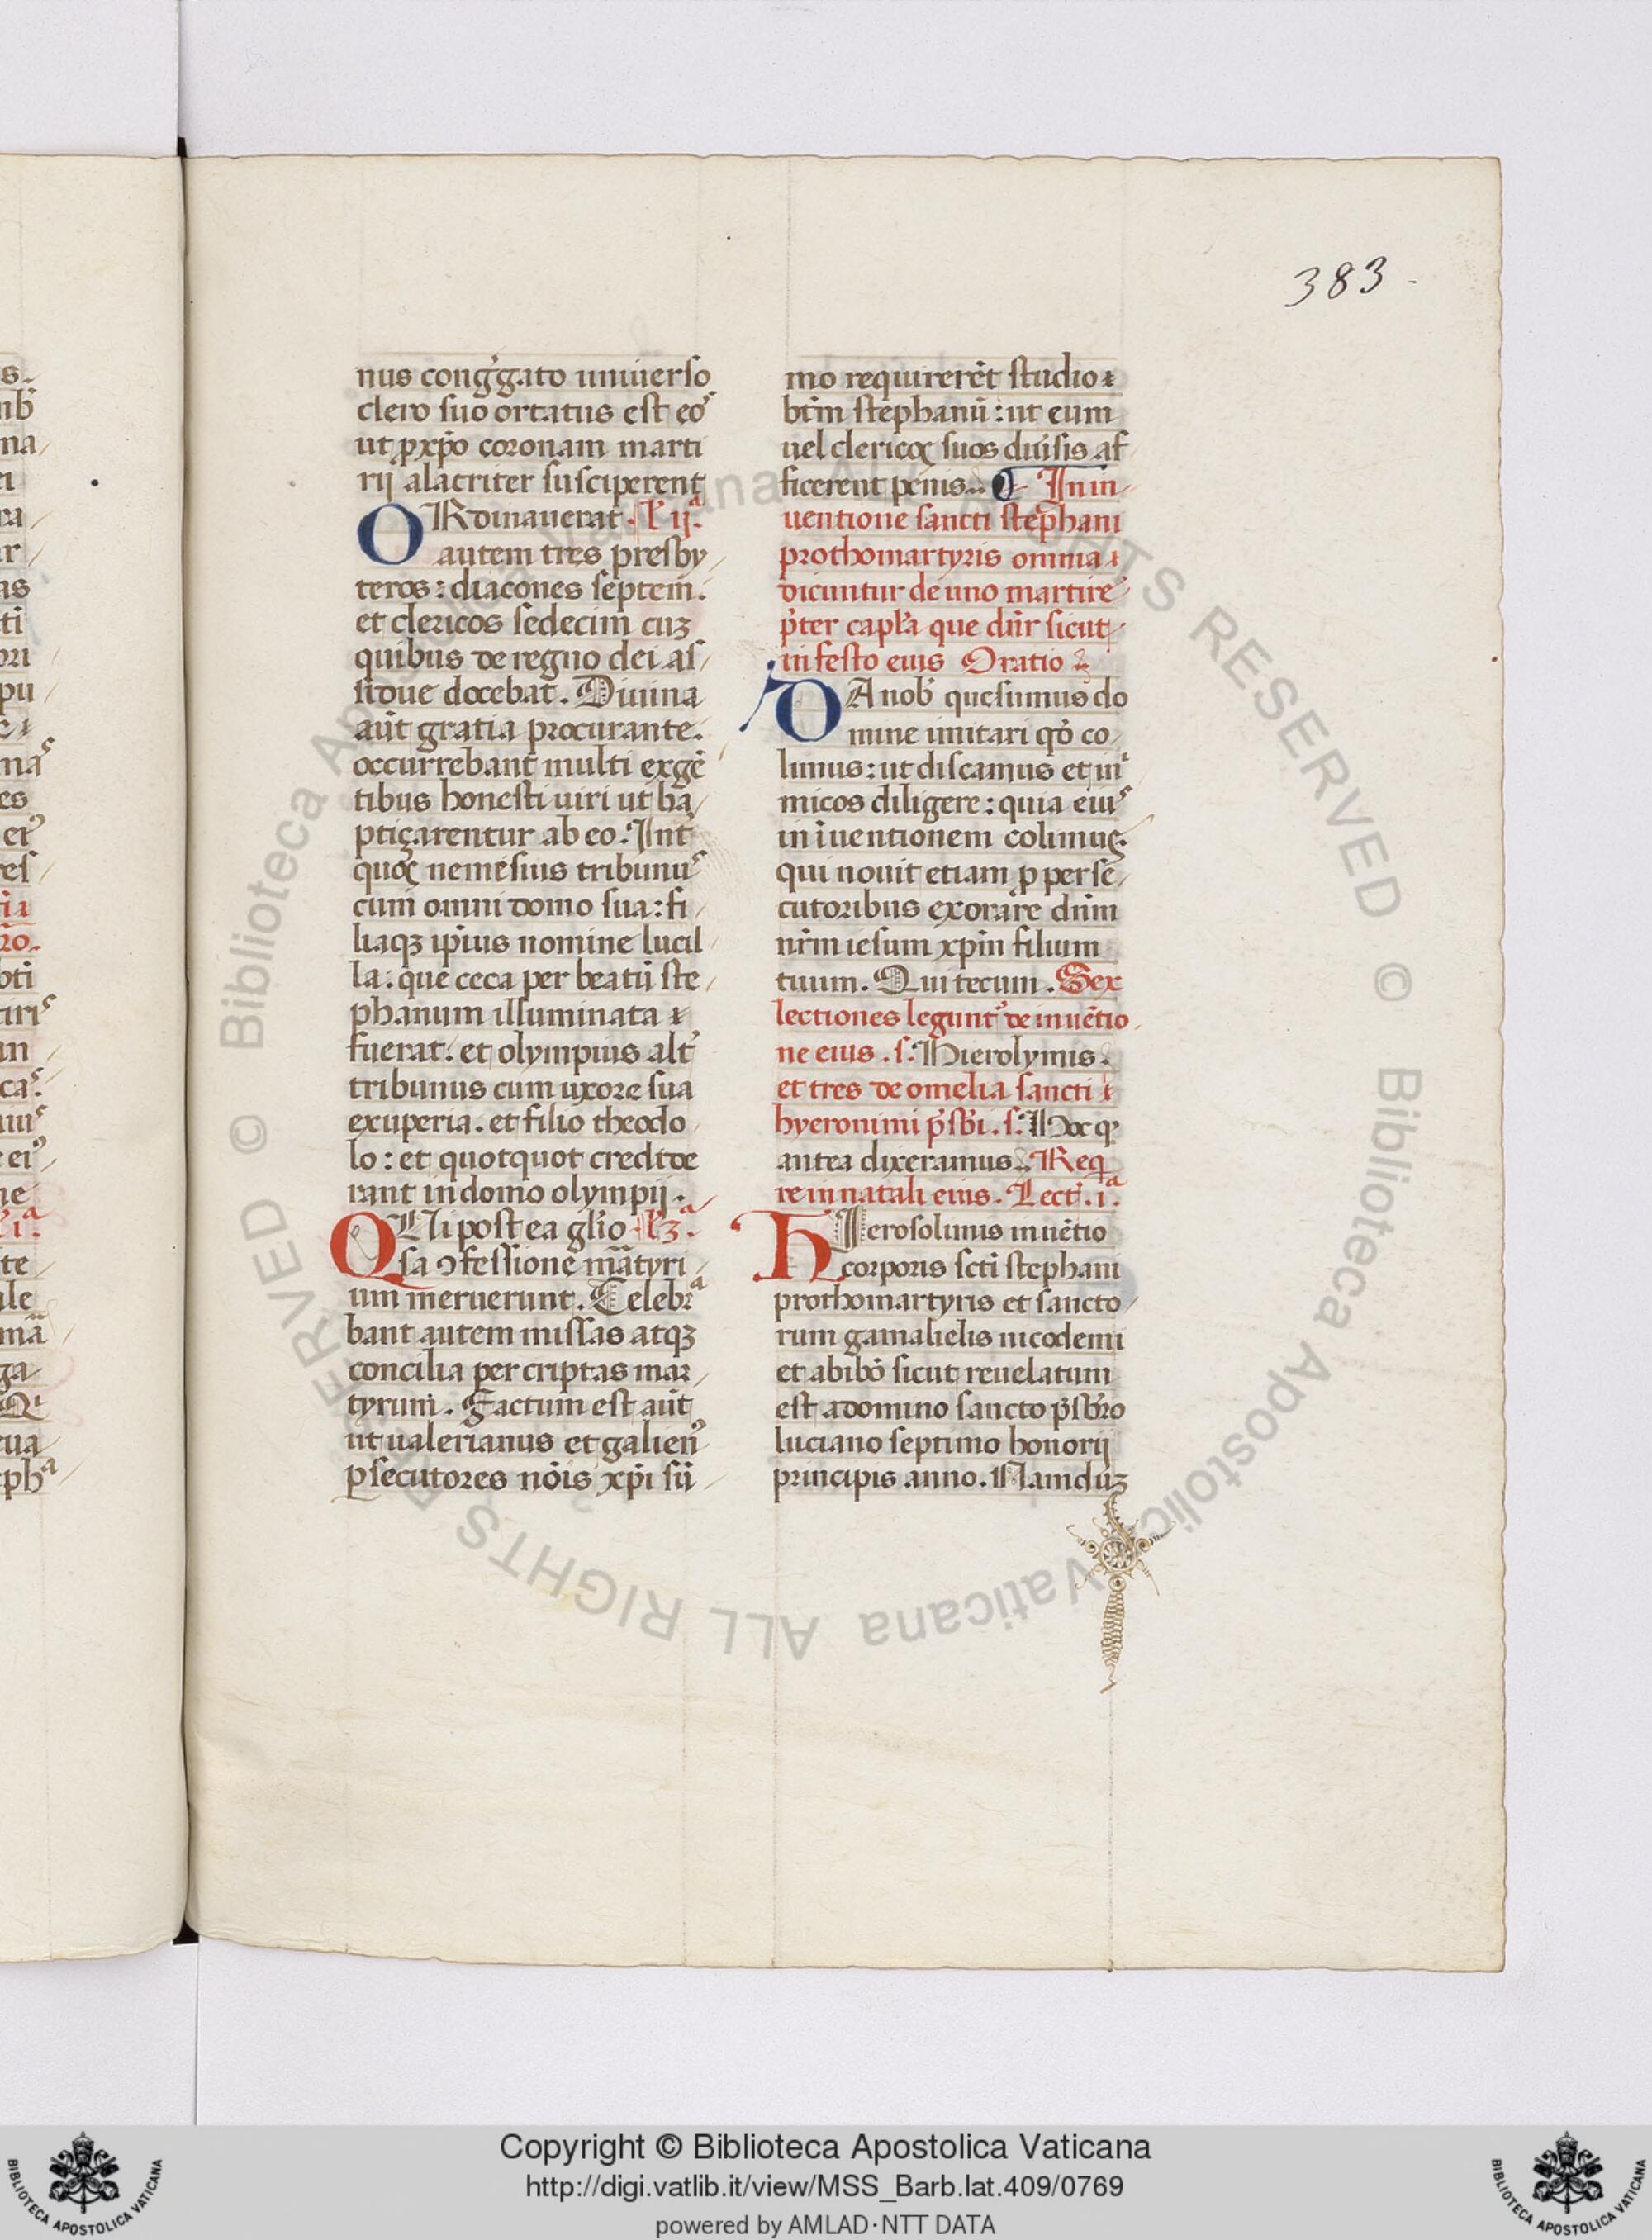 383
nus cong̃gato uniuerso
clero suo ortatus est eos
ut ꝓ xp̄o coronam marti
rij alacriter susciperent
ORdinauerat. l̃ ijᵃ.
autem tres presby
teros: diacones septem.
et clericos sedecim cuʒ
quibus de regno dei as
sidue docebat. Diuina
aūt gratia procurante.
occurrebant multi ex gē
tibus honesti uiri ut ba
ptiçarentur ab eo. Int̃
quoꝝ nemesius tribunus
cum omni domo sua: fi
liaqʒ ip̄ius nomine lucil
la: que ceca per beatū ste
phanum illuminata
fuerat. et olympius alt̃
tribunus cum uxore sua
exuperia. et filio theodo
lo: et quotquot credide
rant in domo olympij.
QUi postea gl̃io l̃ 3ᵃ.
sa ꝯfessione mãtyri
um meruerunt. Celebrᵃ
bant autem missas atqʒ
concilia per criptas mar
tyrum. Factum est aūt
ut ualerianus et galienꝰ
ꝑsecutores nōis xp̄i sū
mo requirerēt studio
bt̄m stephanū: ut eum
uel clericoꝝ suos diuisis af
ficerent penis.. In in
uentione sancti stephani
prothomartyris omnia
dicuntur de uno martire
p̃ter capl̃a que dn̄r sicut
in festo eius Oratio
DA nob̃ quesumus do
mine imitari qď co
limus: ut discamus et ini
micos diligere: quia eius
in iuentionem colimus.
qui nouit etiam ꝓ perse
cutoribus exorare dn̄m
nr̄m iesum xp̄m filium
tuum. Qui tecum. Sex
lectiones leguntꝰ de inuētio
ne eius. s. Hierolymis.
et tres de omelia sancti
hyeronimi p̃sb̃i. s. Hoc qꝫ
antea dixeramus.. Req̃
re in natali eius. Lect̃. iᵃ.
HIerosolimis inuētio
corporis sc̄ti stephani
prothomartyris et sancto
rum gamalielis nicodemi
et abibō sicut reuelatum
est a domino sancto p̃sb̃ro
luciano septimo honorij
principis anno. Nam cūʒ
Copyright © Biblioteca Apostolica Vaticana
http://digi.vatlib.it/view/MSS_Barb.lat.409/0769
powered by AMLAD·NTT DATA